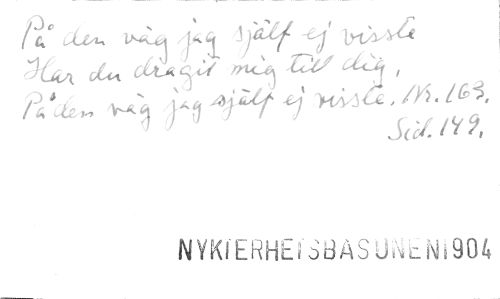 På den väg jag själf ej visste
Har du dragit mig till dig,
På den väg jag själf ej visste. Nr. 163.
Sid. 149.
NYKTERHETSBASUNEN 1904